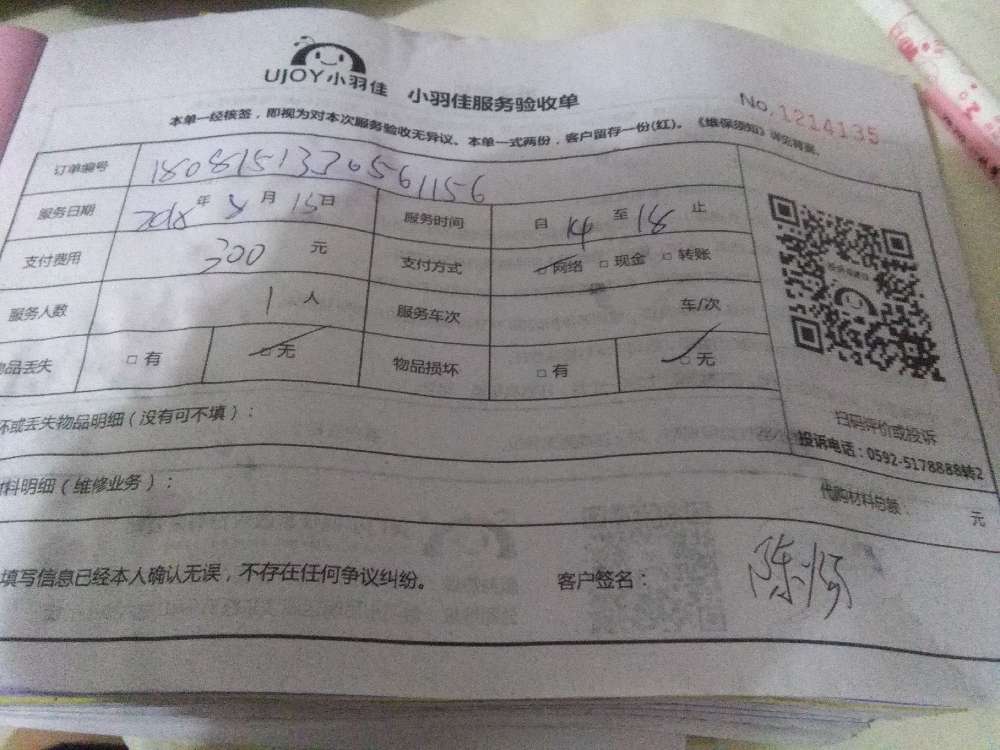 UJOY小羽佳 小羽佳服务验收单
No.1214135
本单一经核签，即视为对本次服务验收无异议、本单一式两份，客户留存一份(红)。《维保须知》详见背面。
订单编号 1808151330561156
服务日期 2018 年 8 月 15 日 服务时间 自 14 至 18 止
支付费用 300 元 支付方式 □ 网络 □ 现金 □ 转账
服务人数 1 人 服务车次 车/次
品丢失 □ 有 □ 无 物品损坏 □ 有 □ 无
扫码评价或投诉
投诉电话：0592-5178888转2
坏或丢失物品明细（没有可不填）：
料明细（维修业务）： 代购材料总额： 元
填写信息已经本人确认无误，不存在任何争议纠纷。 客户签名： 陈